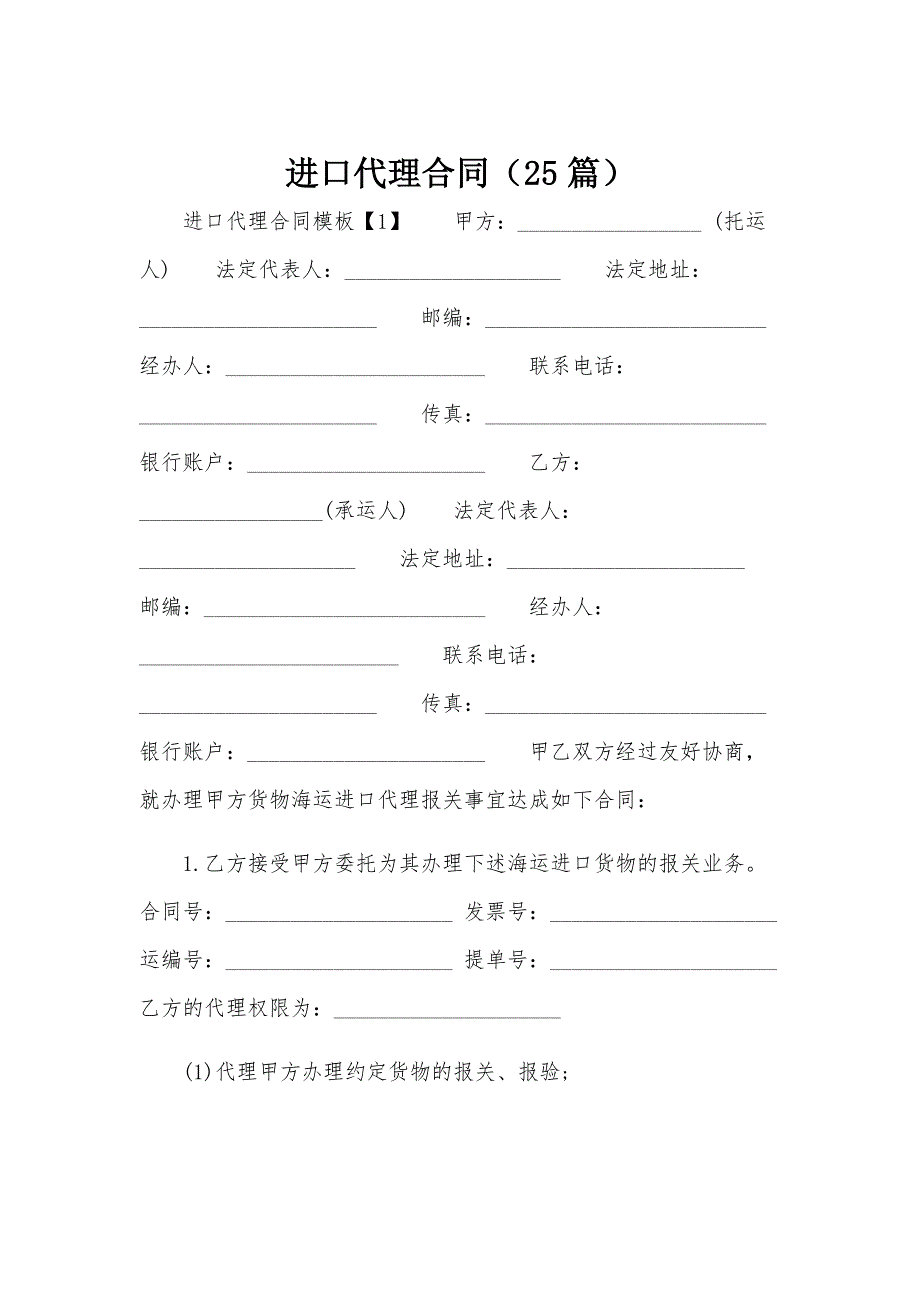 进口代理合同（25篇）
进口代理合同模板【1】 甲方：_________________ (托运
人) 法定代表人：____________________ 法定地址：
______________________ 邮编：__________________________
经办人：________________________ 联系电话：
______________________ 传真：__________________________
银行账户：______________________ 乙方：
_________________(承运人) 法定代表人：
____________________ 法定地址：______________________
邮编：__________________________ 经办人：
________________________ 联系电话：
______________________ 传真：__________________________
银行账户：______________________ 甲乙双方经过友好协商，
就办理甲方货物海运进口代理报关事宜达成如下合同：
1.乙方接受甲方委托为其办理下述海运进口货物的报关业务。
合同号：_____________________ 发票号：_____________________
运编号：_____________________ 提单号：_____________________
乙方的代理权限为：_____________________
(1)代理甲方办理约定货物的报关、报验；